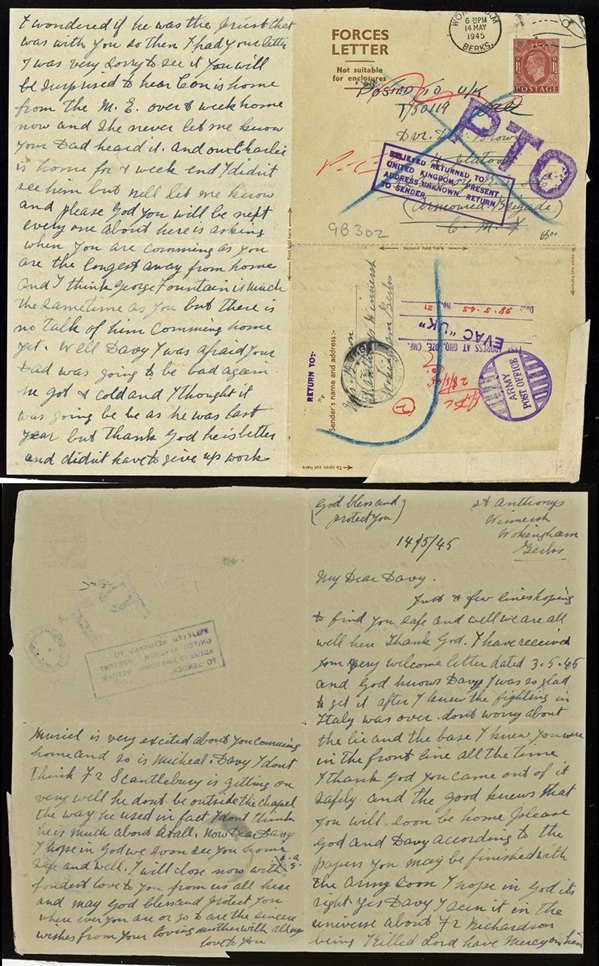 I wondered if he was the Priest that
was with you so then I had your letter
I was very sorry to see it you will
be surprised to hear Con is home
from the M. E. over & week home
now and she never let me know
your Dad heard it. And our Charlie
is home for & week end I didn't
see him but Nell let me know
and please God you will be next
every one about here is asking
when you are comming as you
are the longest away from home
and I think George Fountain is much
the sametime as you but there is
no talk of him comming home
yet. Well Davy I was afraid your
Dad was going to be bad again
he got & cold and I thought it
was going be be as he was last
year but thank God he is better
and didn't have to give up work
FORCES
LETTER
Not suitable
for enclosures
WOKINGHAM
6-PM
14 MAY
1945
BERKS.
POSTAGE
POSTED TO U/K
T/50119
Dvr.
PTO
BELIEVED RETURNED TO
UNITED KINGDOM. PRESENT
ADDRESS UNKNOWN. RETURN
TO SENDER.
(Armoured Brigade)
C. M. F.
GB302
First fold here
Second fold here
RETURN TO:-
Sender's name and address:-
28.5.45
EVAC "UK"
ARMY
POST OFFICE
To open cut here
God bless and
protect you
St Anthonys
Winnersh
Wokingham
Berks
14/5/45
My Dear Davy.
Just & few lines hoping
to find you safe and well we are all
well here Thank God. I have received
your very welcome letter dated 3.5.45
and God knows Davy I was so glad
to get it after I knew the fighting in
Italy was over. dont worry about
the lie and the base I knew you were
in the front line all the time
I thank God you came out of it
safely and the good knews that
you will soon be home please
God and Davy according to the
papers you may be finished with
the army soon I hope in God its
right yes Davy I seen it in the
universe about Fr Richardson
being killed Lord have Mercy on him
TO SENDER
ADDRESS UNKNOWN. RETURN
UNITED KINGDOM. PRESENT
BELIEVED RETURNED TO
Muriel is very excited about you comming
home and so is Micheal Davy I dont
think Fr Scantlebury is getting on
very well he dont be outside the chapel
the way he used in fact I dont think
he is much about at all. Now Dear Davy
I hope in God we soon see you home
safe and well. I will close now with
fondest love to you from us all here
and may God bless and protect you
where ever you are or go to are the sincere
wishes from your loving mother with all my
love to you